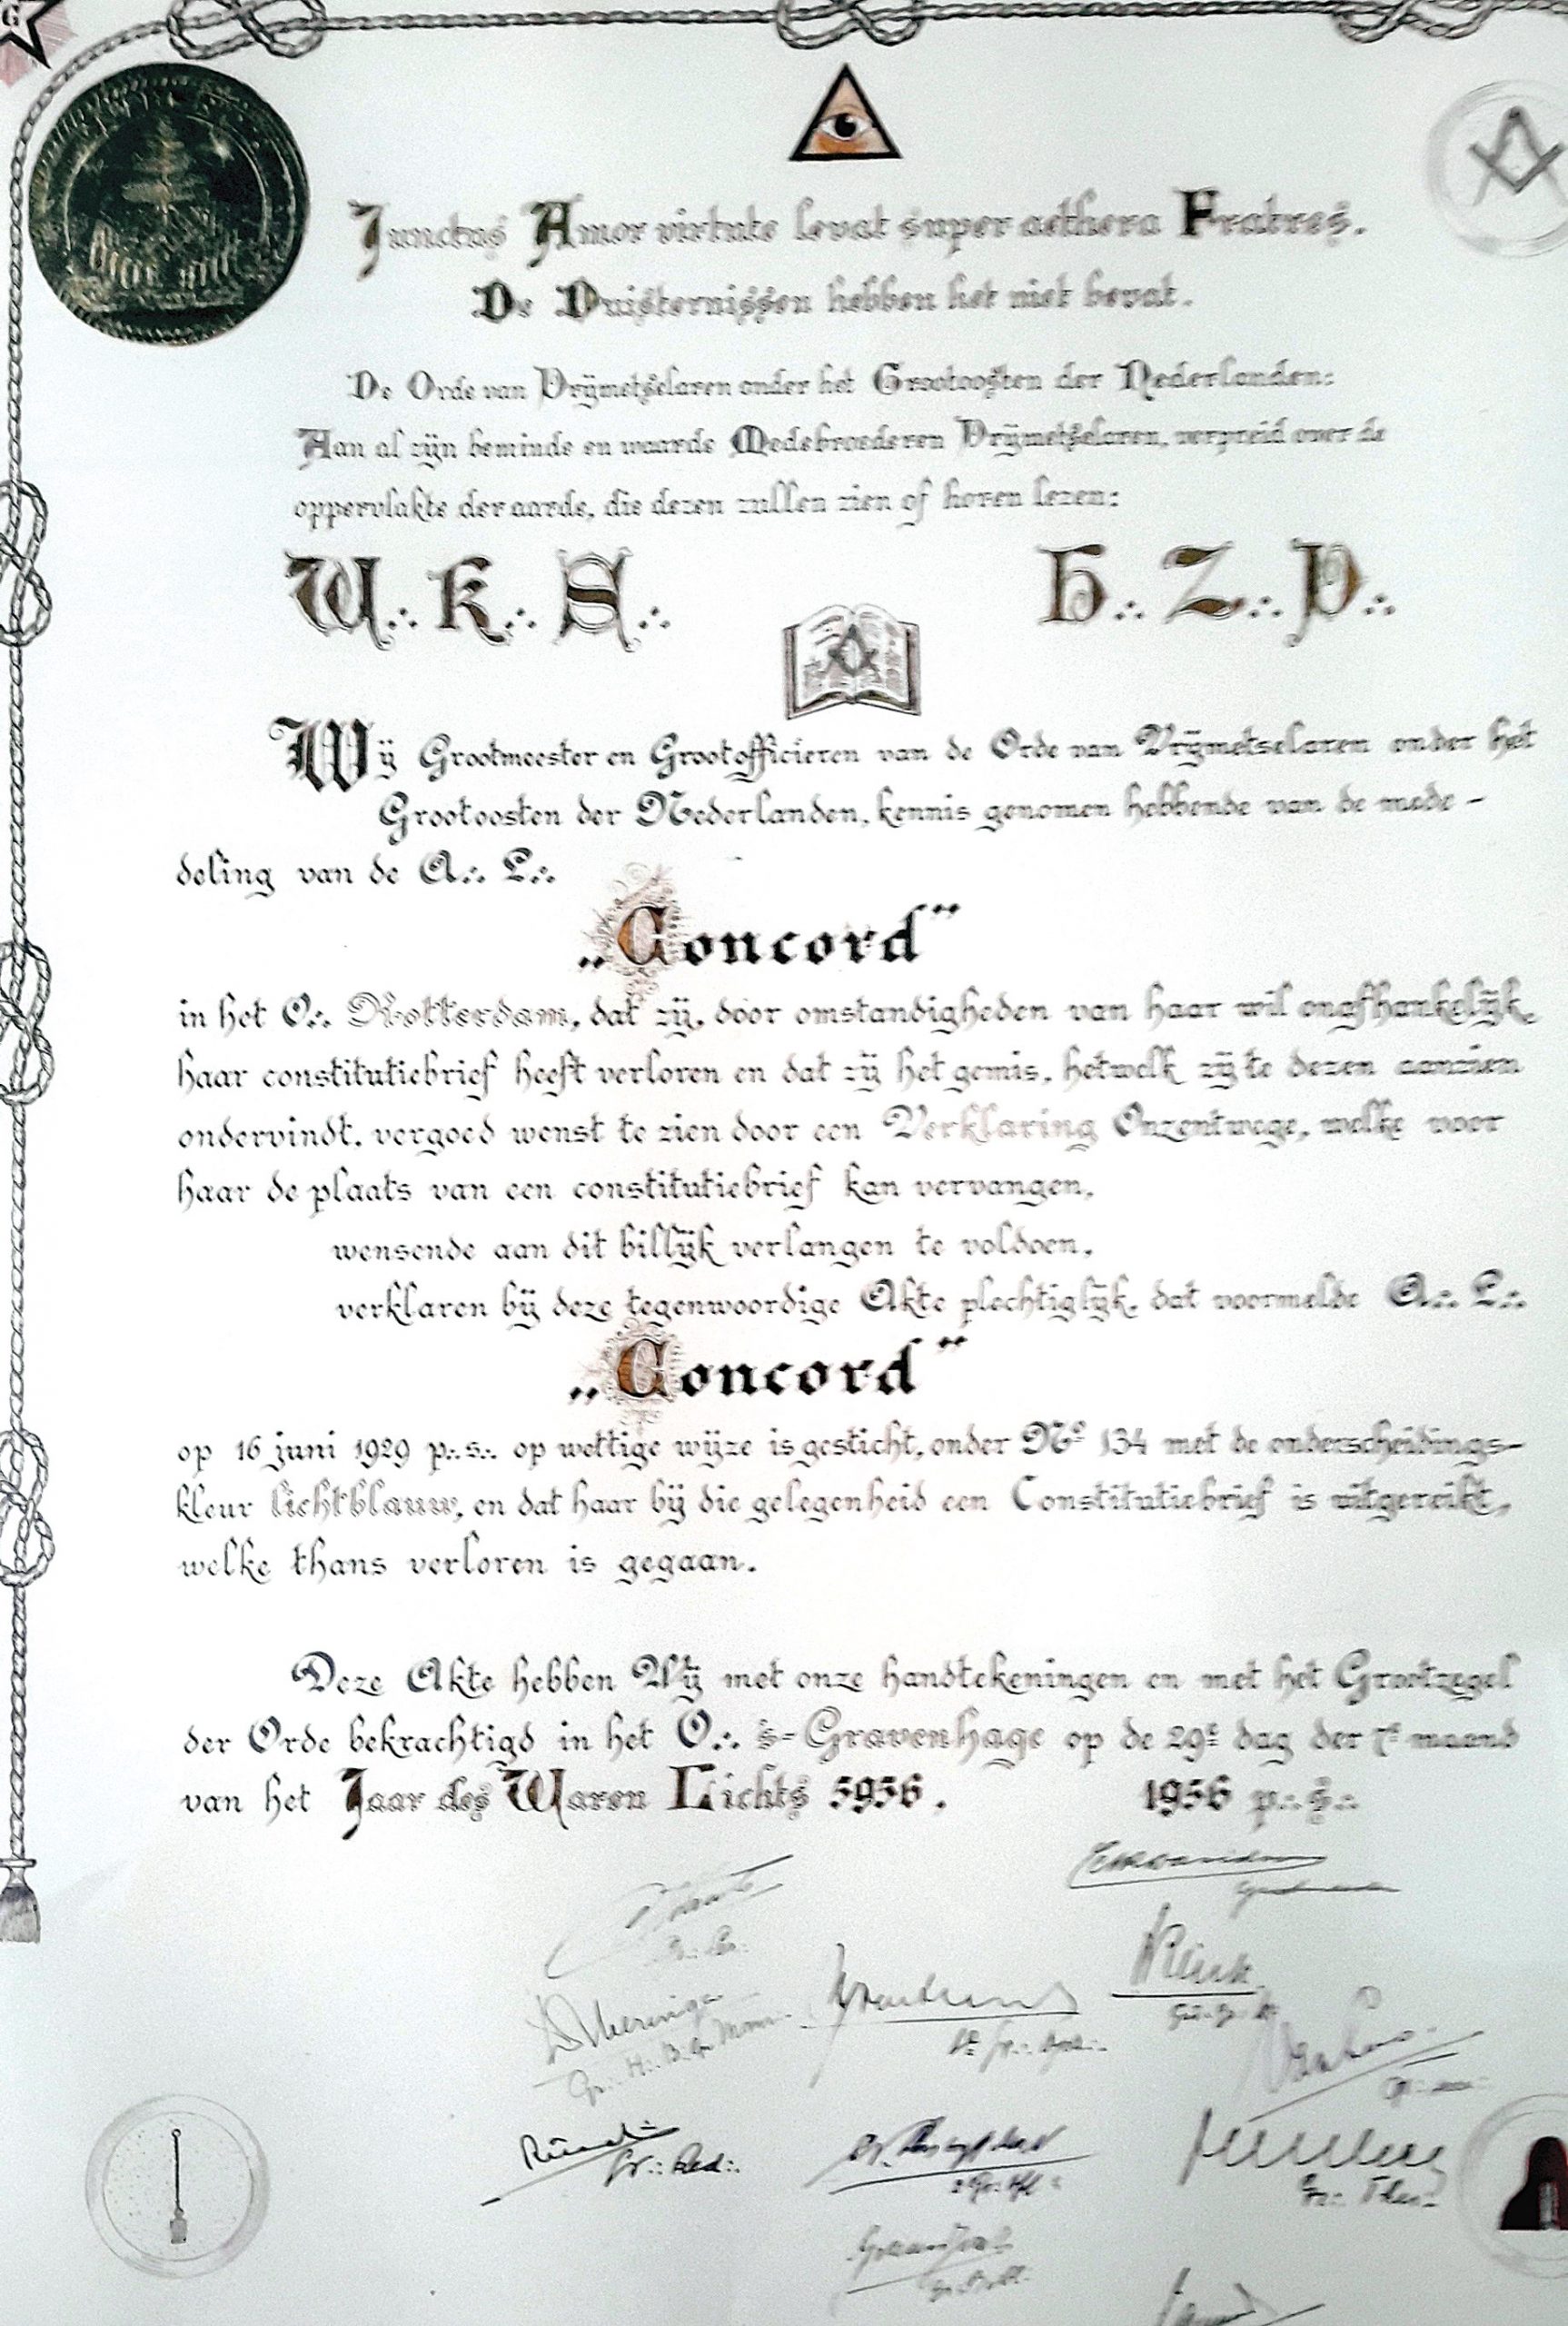 G
Junctus Amor virtute levat super aethera Fratres.
De Duisternissen hebben het niet bevat.
De Orde van Vrijmetselaren onder het Grootoosten der Nederlanden:
Aan al zijn beminde en waarde Medebroederen Vrijmetselaren, verpreid over de
oppervlakte der aarde, die dezen zullen zien of horen lezen:
W∴ K∴ S∴ H∴ Z∴ V∴
Wij Grootmeester en Grootofficieren van de Orde van Vrijmetselaren onder het
Grootoosten der Nederlanden, kennis genomen hebbende van de mede-
deling van de A∴ L∴
„Concord”
in het O∴ Rotterdam, dat zij, door omstandigheden van haar wil onafhankelijk,
haar constitutiebrief heeft verloren en dat zij het gemis, hetwelk zij te dezen aanzien
ondervindt, vergoed wenst te zien door een Verklaring Onzentwege, welke voor
haar de plaats van een constitutiebrief kan vervangen,
wensende aan dit billijk verlangen te voldoen,
verklaren bij deze tegenwoordige Akte plechtiglijk, dat voormelde A∴ L∴
„Concord”
op 16 juni 1929 p∴ s∴ op wettige wijze is gesticht, onder No 134 met de onderscheidings-
kleur lichtblauw, en dat haar bij die gelegenheid een Constitutiebrief is uitgereikt,
welke thans verloren is gegaan.
Deze Akte hebben Wij met onze handtekeningen en met het Grootzegel
der Orde bekrachtigd in het O∴ 's-Gravenhage op de 29e dag der 7e maand
van het Jaar des Waren Lichts 5956. 1956 p∴ s∴
Gr∴ Red∴